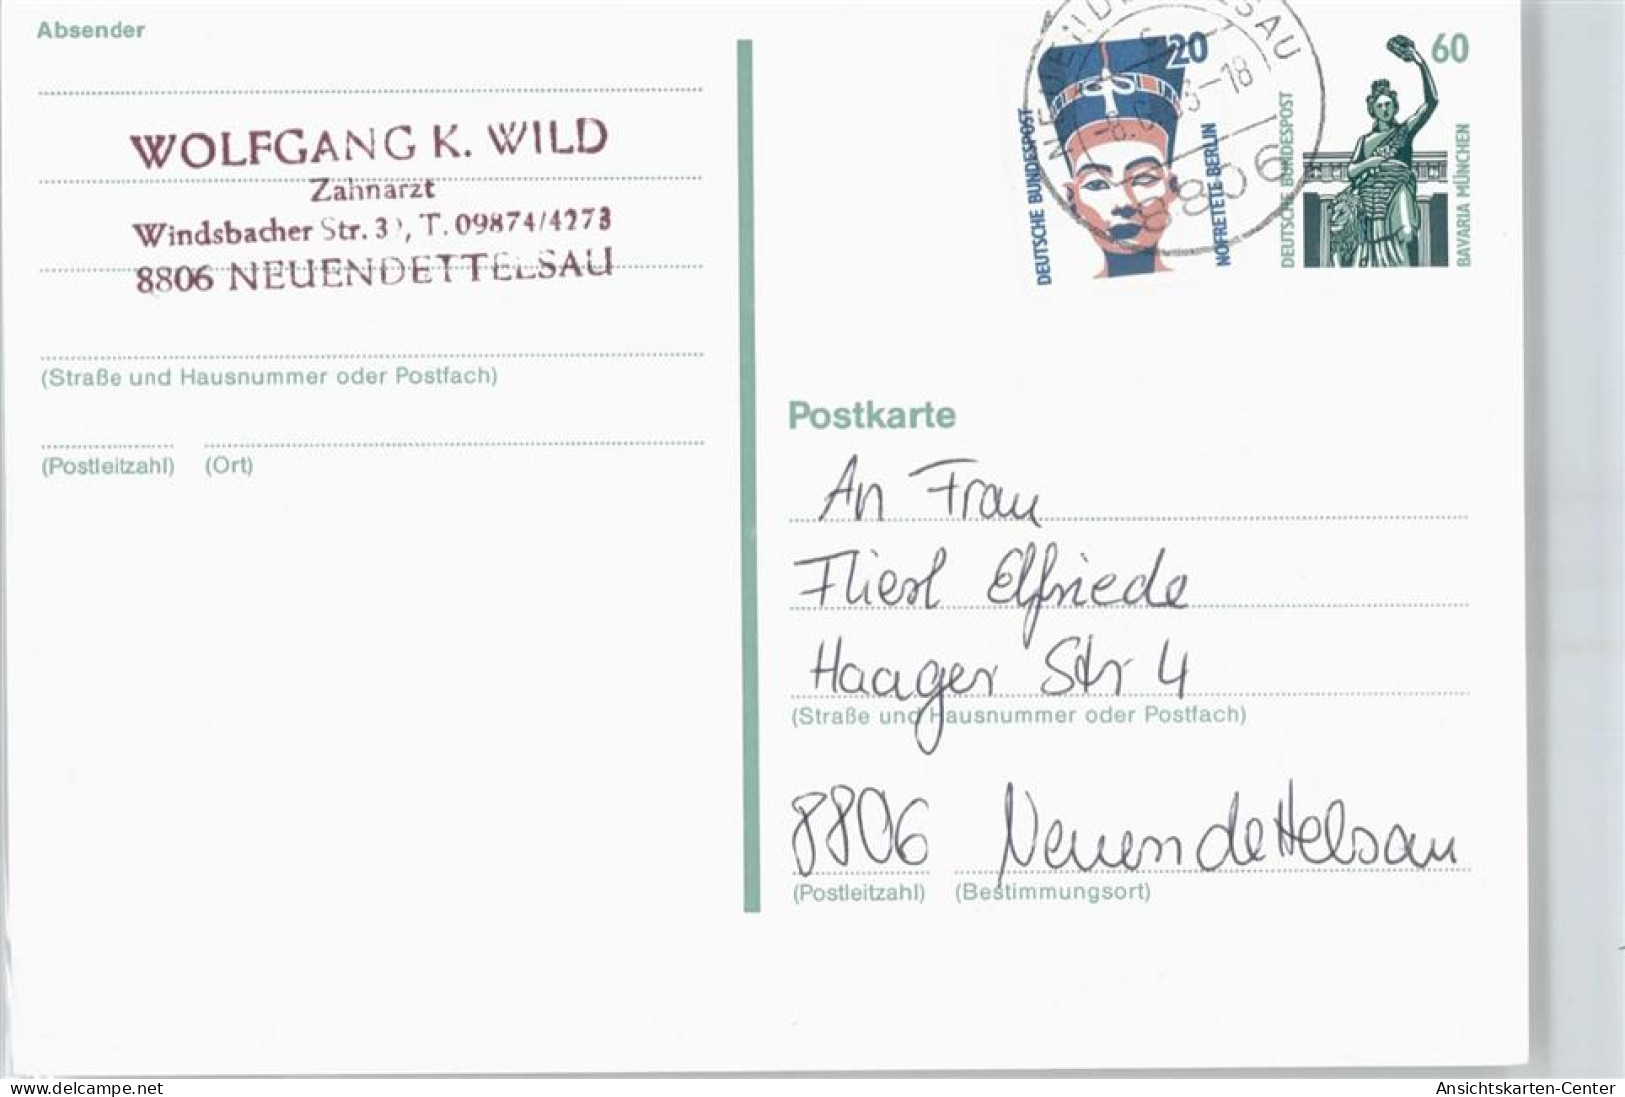 Absender
WOLFGANG K. WILD
Zahnarzt
Windsbacher Str. 3 , T. 09874/4273
8806 NEUENDETTELSAU
(Straße und Hausnummer oder Postfach)
(Postleitzahl) (Ort)
20
DEUTSCHE BUNDESPOST
NOFRETETE BERLIN
8806
60
DEUTSCHE BUNDESPOST
BAVARIA MÜNCHEN
Postkarte
An Frau
Flierl Elfriede
Haager Str 4
(Straße und Hausnummer oder Postfach)
8806 Neuendettelsau
(Postleitzahl) (Bestimmungsort)
www.delcampe.net
Ansichtskarten-Center